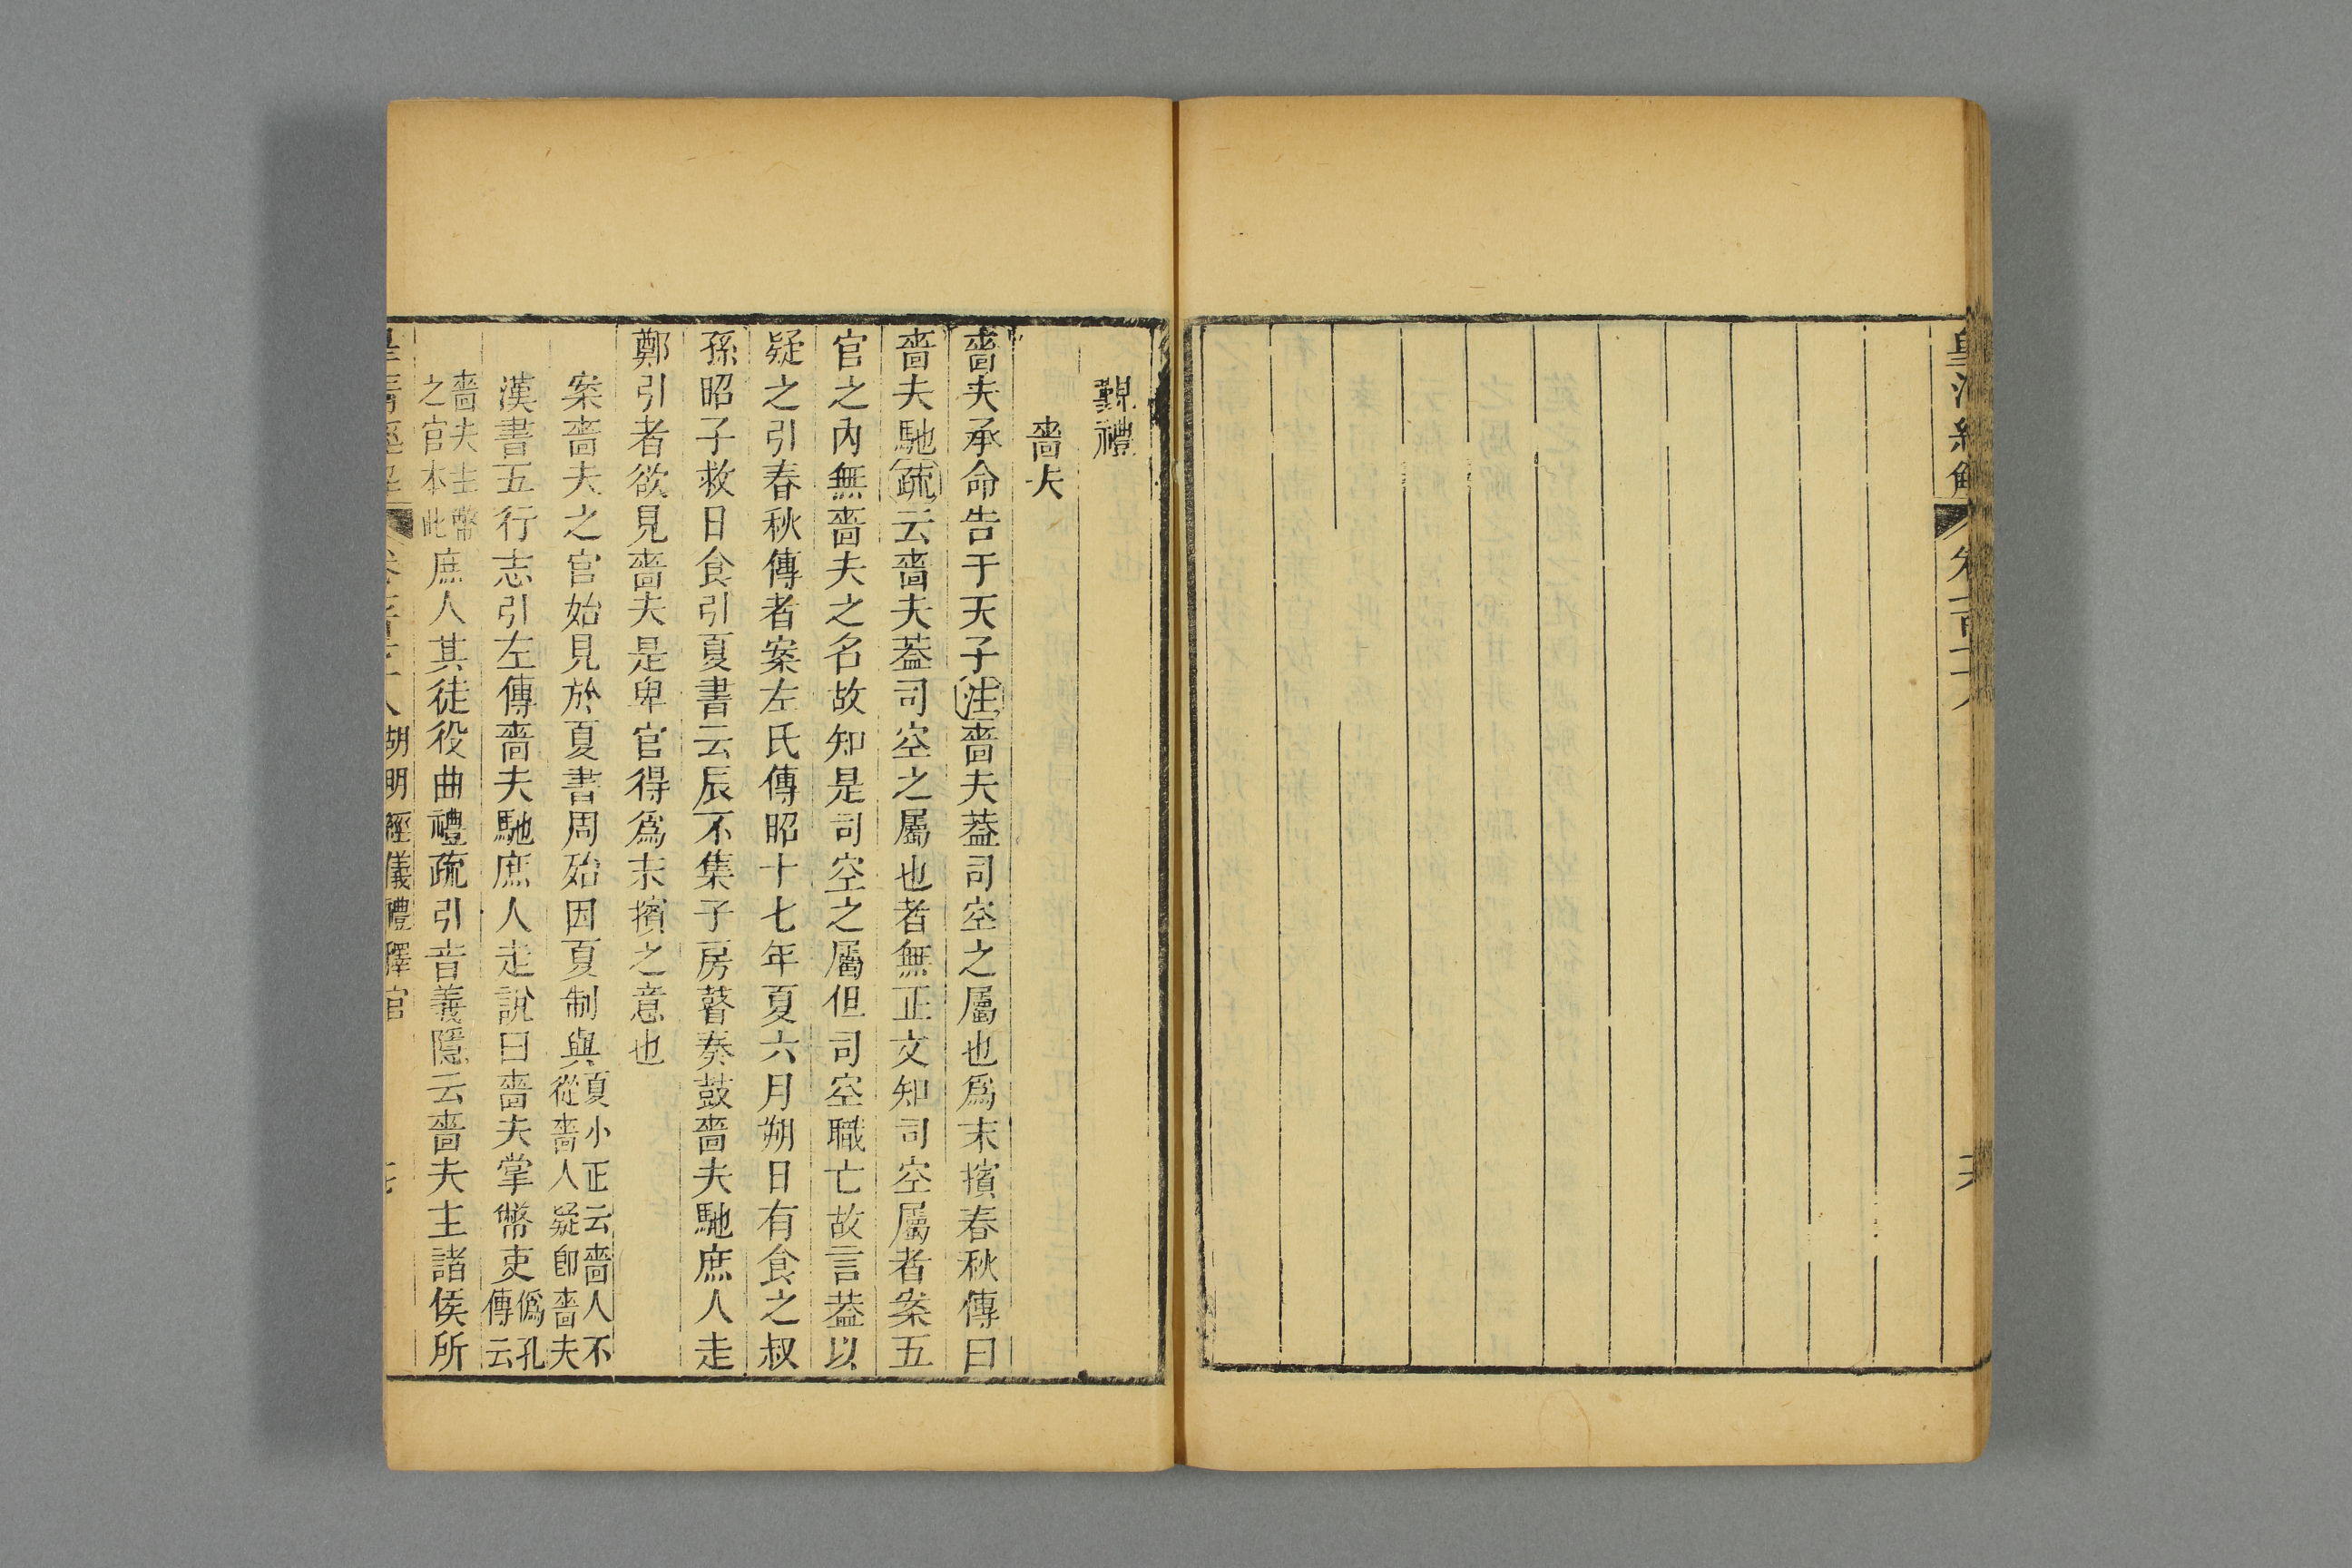 皇清經解
卷百
覲禮
嗇夫
嗇夫承命告于天子注嗇夫葢司空之屬也爲末擯春秋傳曰
嗇夫馳疏云嗇夫葢司空之屬也者無正文知司空屬者案五
官之內無嗇夫之名故知是司空之屬但司空職亡故言葢以
疑之引春秋傳者案左氏傳昭十七年夏六月朔日有食之叔
孫昭子救日食引夏書云辰不集子房瞽奏鼓嗇夫馳庶人走
鄭引者欲見嗇夫是卑官得爲末擯之意也
案嗇夫之官始見於夏書周殆因夏制與夏小正云嗇人不從嗇人疑卽嗇夫
漢書五行志引左傳嗇夫馳庶人走說曰嗇夫掌幣吏僞孔傳云
嗇夫主幣之官本此庶人其徒役曲禮疏引音義隱云嗇夫主諸侯所
皇清經解
胡明經儀禮釋官